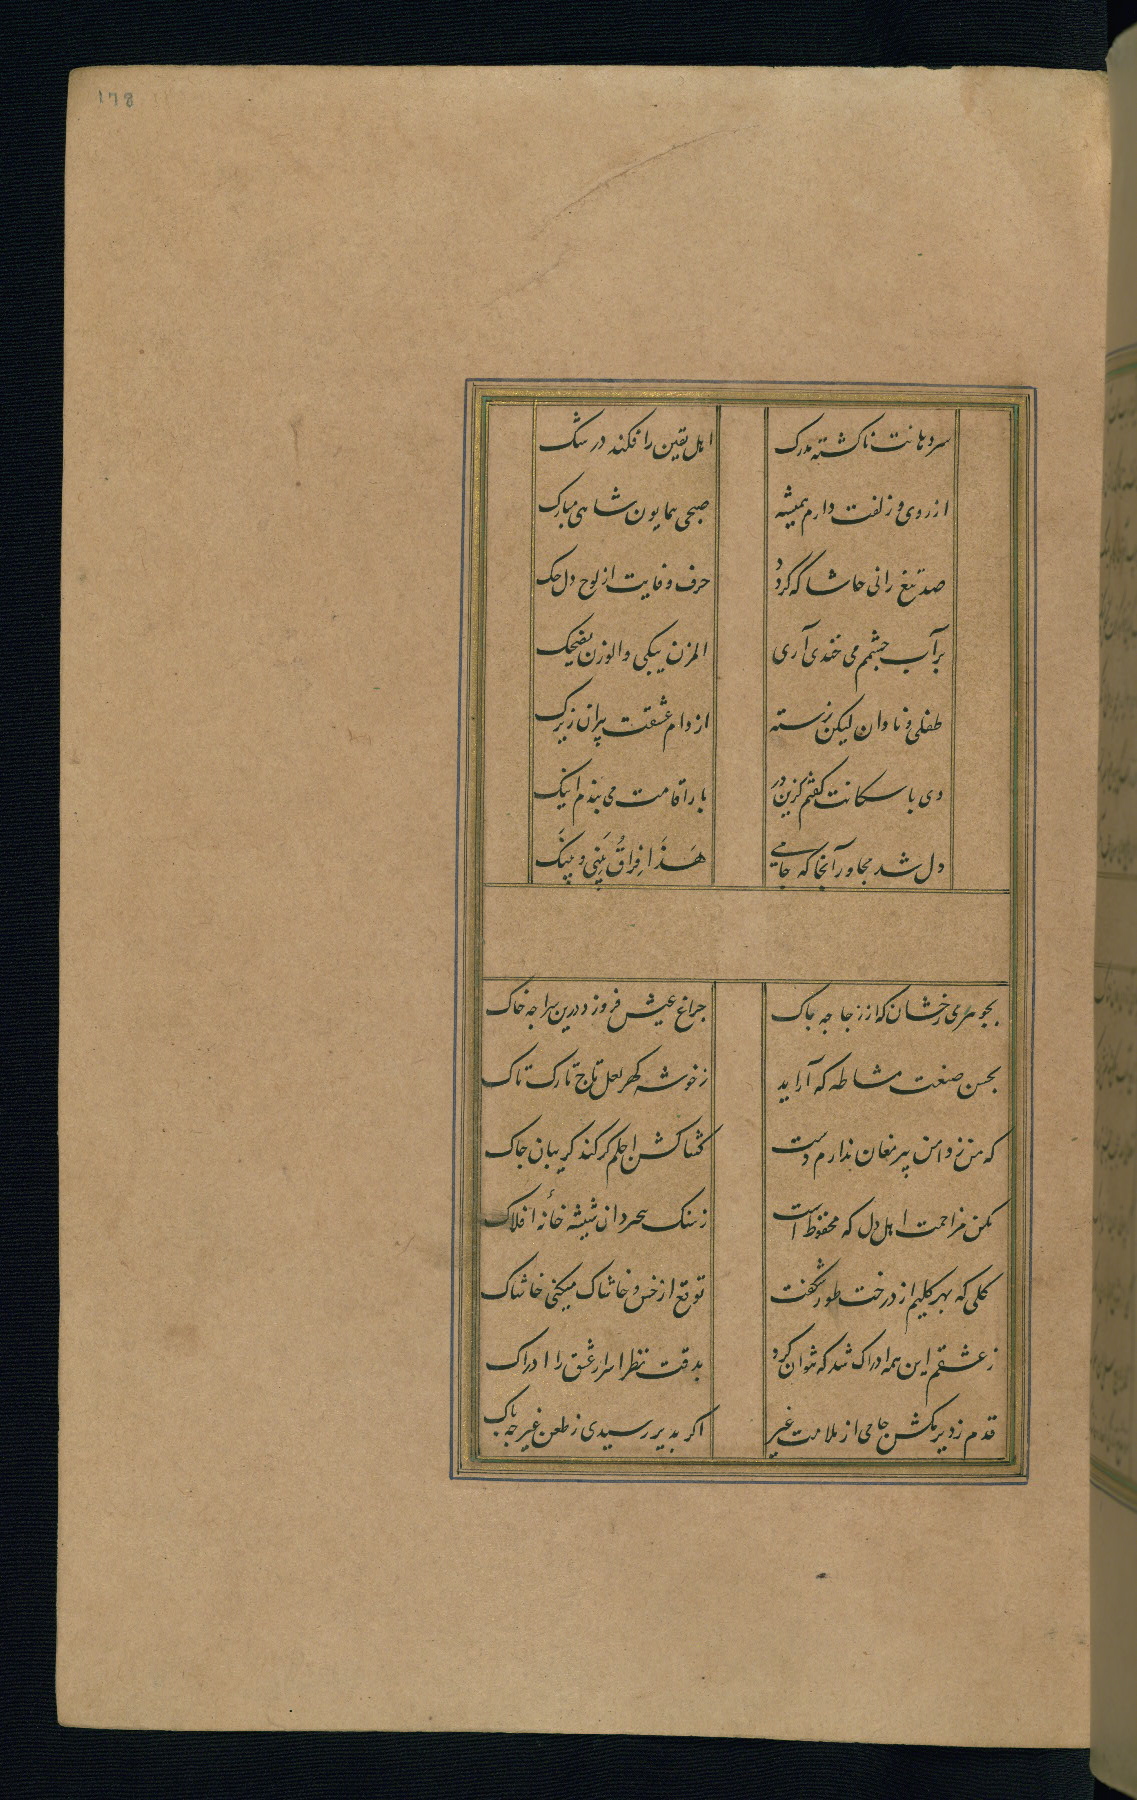 178
سر دهانت ناگشته مدرک
اهل یقین را فکنده در شک
از روی و زلفت دارم همیشه
صبحی همایون شامی مبارک
صد تیغ رانی حاشا که گردد
حرف وفایت از لوح دل حک
بر آب چشمم می خندی آری
المزن یبکی والورد یضحک
طفلی و نادان لیکن نرسته
از دام عشقت پیران زیرک
دی با سگانت گفتم کزین در
بار اقامت می بندم اینک
دل شد مجاور آنجا که جامی
هَذَا فِراقُ بَینی و بینکَ
بجوهر می رخشان که از زجاجه پاک
چراغ عیش فروزد درین سراجه خاک
بحسن صنعت مشاطه که آراید
ز خوشه گهر لعل تاج تارک تاک
که من ز دامن پیر مغان ندارم دست
کشاکش اجلم گر کند گریبان چاک
مکن مزاحمت اهل دل که محفوظ است
ز سنک شیشه خانهٔ افلاک
گلی که بهر کلیم از درخت طور شکفت
توقع از خس و خاشاک میکنی حاشاک
ز عشقم این همه ادراک شد که نتوان کرد
بدقت نظر اسرار عشق را ادراک
قدم ز دیر مکش جامی از ملامت غیر
اگر بدیر رسیدی ز طعن غیر چه باک